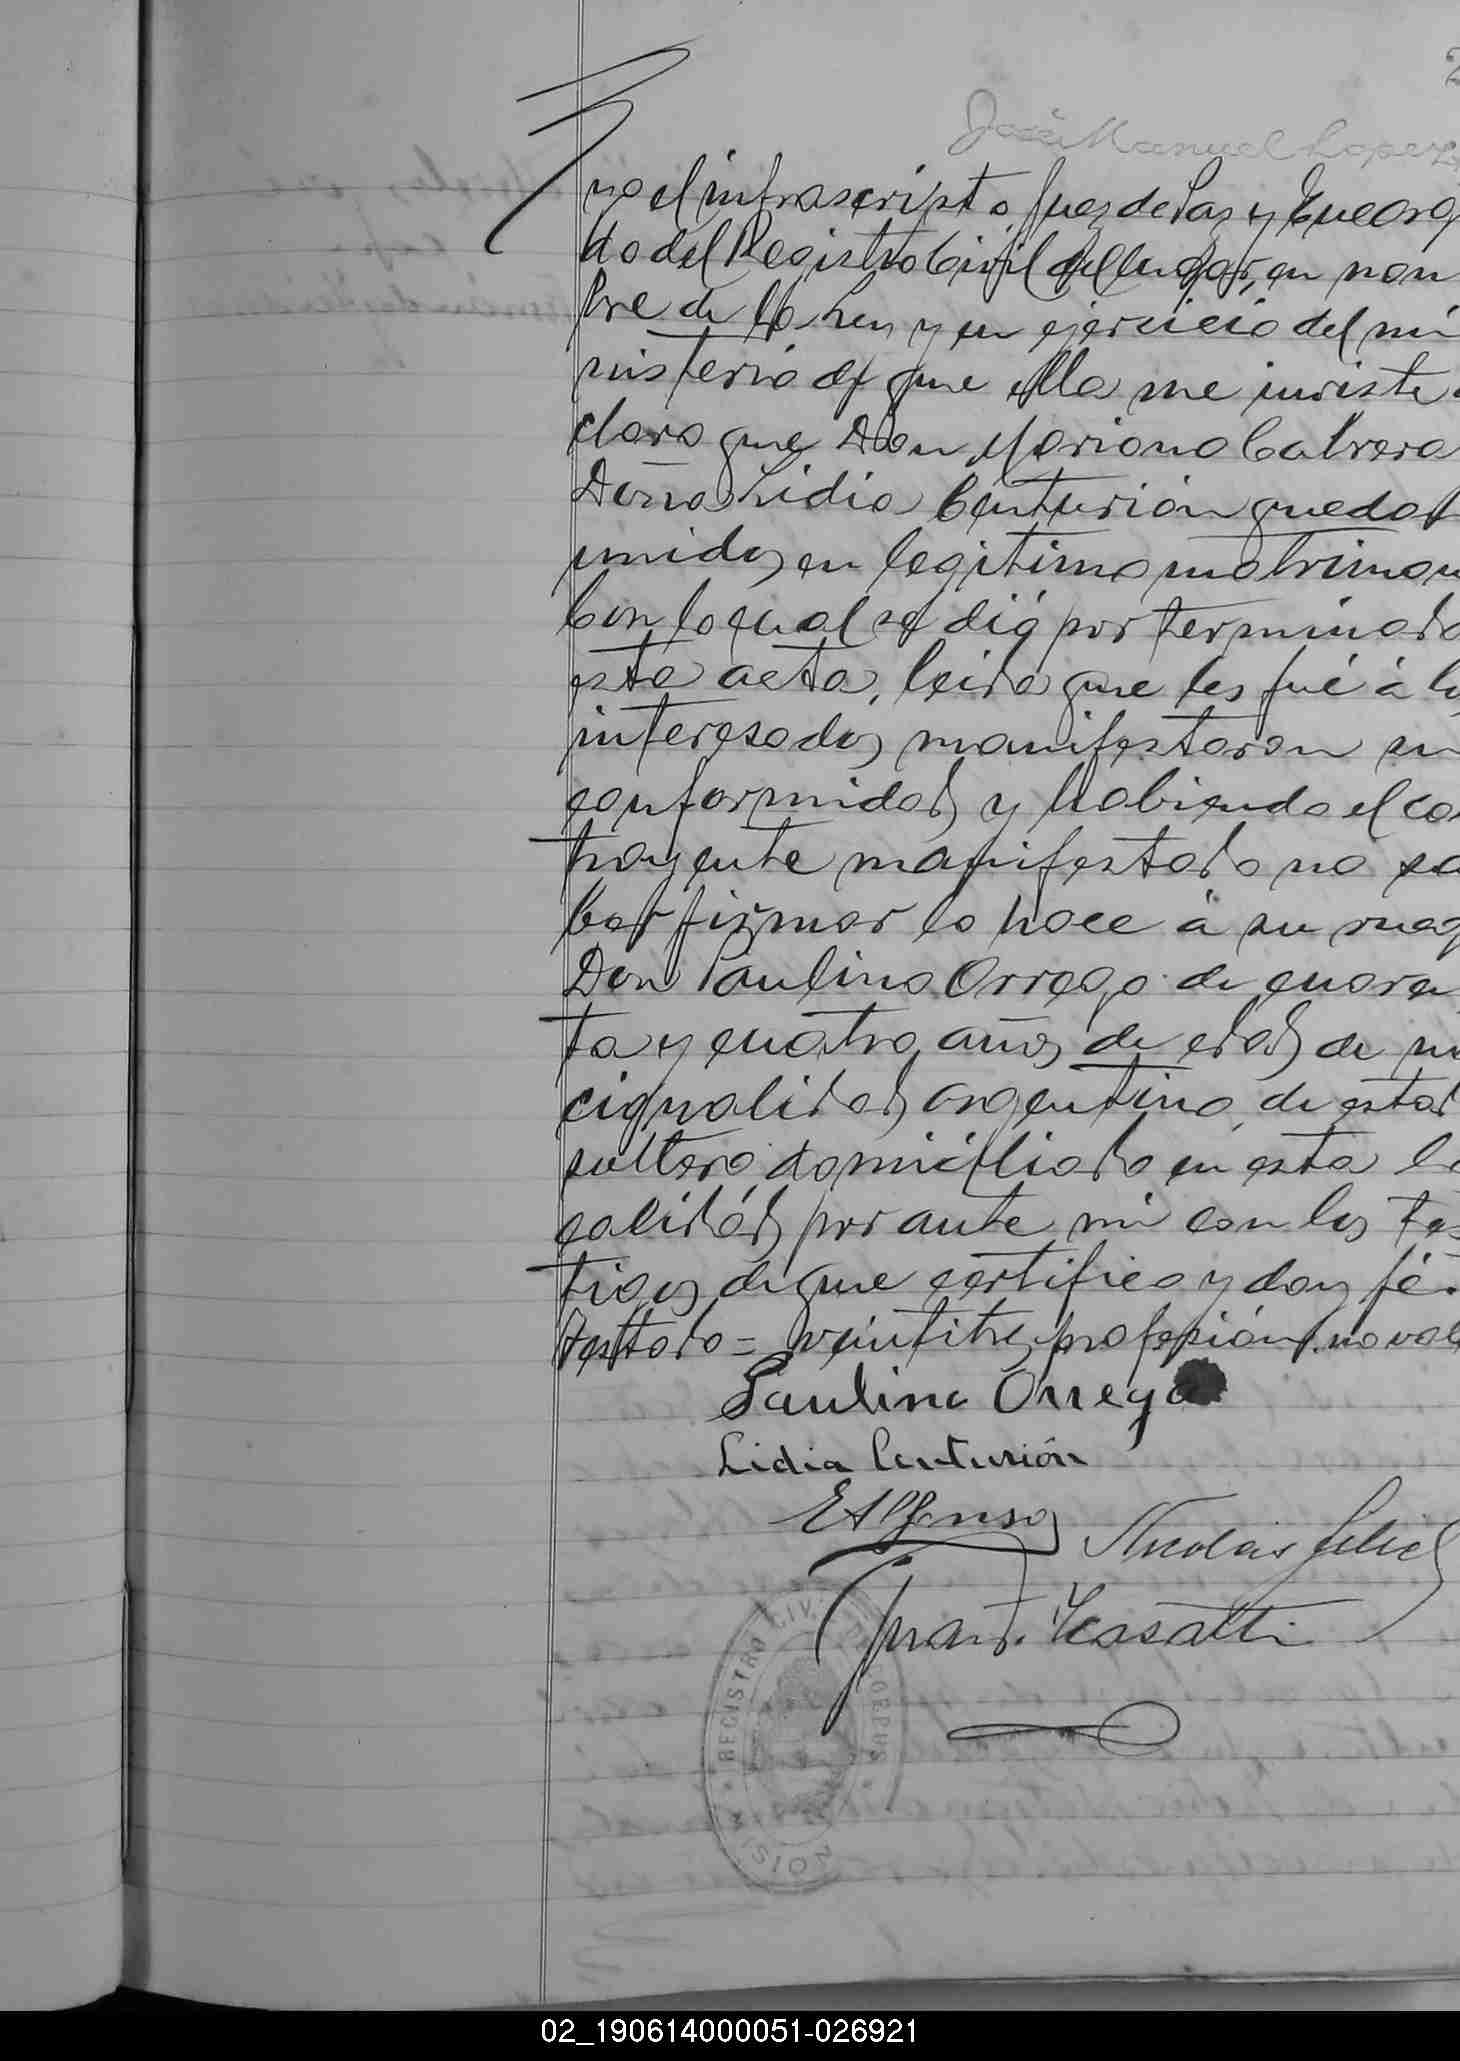 2
José Manuel Lopez
yo el infrascripto Juez de Paz y Encarg
do del Registro Civil del lugar, en nom
bre de la Ley y en ejercicio del mi
nisterio de que ella me inviste
claro que Don Mariano Cabrera
Doña Lidia Centurión quedan
unidos en legitimo matrimon
Con lo cual se dió por terminada
esta acta, leida que les fué á los
interesados manifestaron su
conformidad y habiendo el con
trayente manifestado no sa
ber firmar lo hace á su rueg
Don Paulino Orrego de cuaren
ta y cuatro años de edad de na
cionalidad argentino, de estad
soltero, domiciliado en esta lo
calidad, por ante mi con los tes
tigos de que certifico y doy fé.
Testado = veintitres, profesión, no vale
Paulino Orrego
Lidia Centurión
E Alfonso
Nicolás
Juan F. Casatti
REGISTRO CIVIL DE CORPUS
MISIONES
02_190614000051-026921